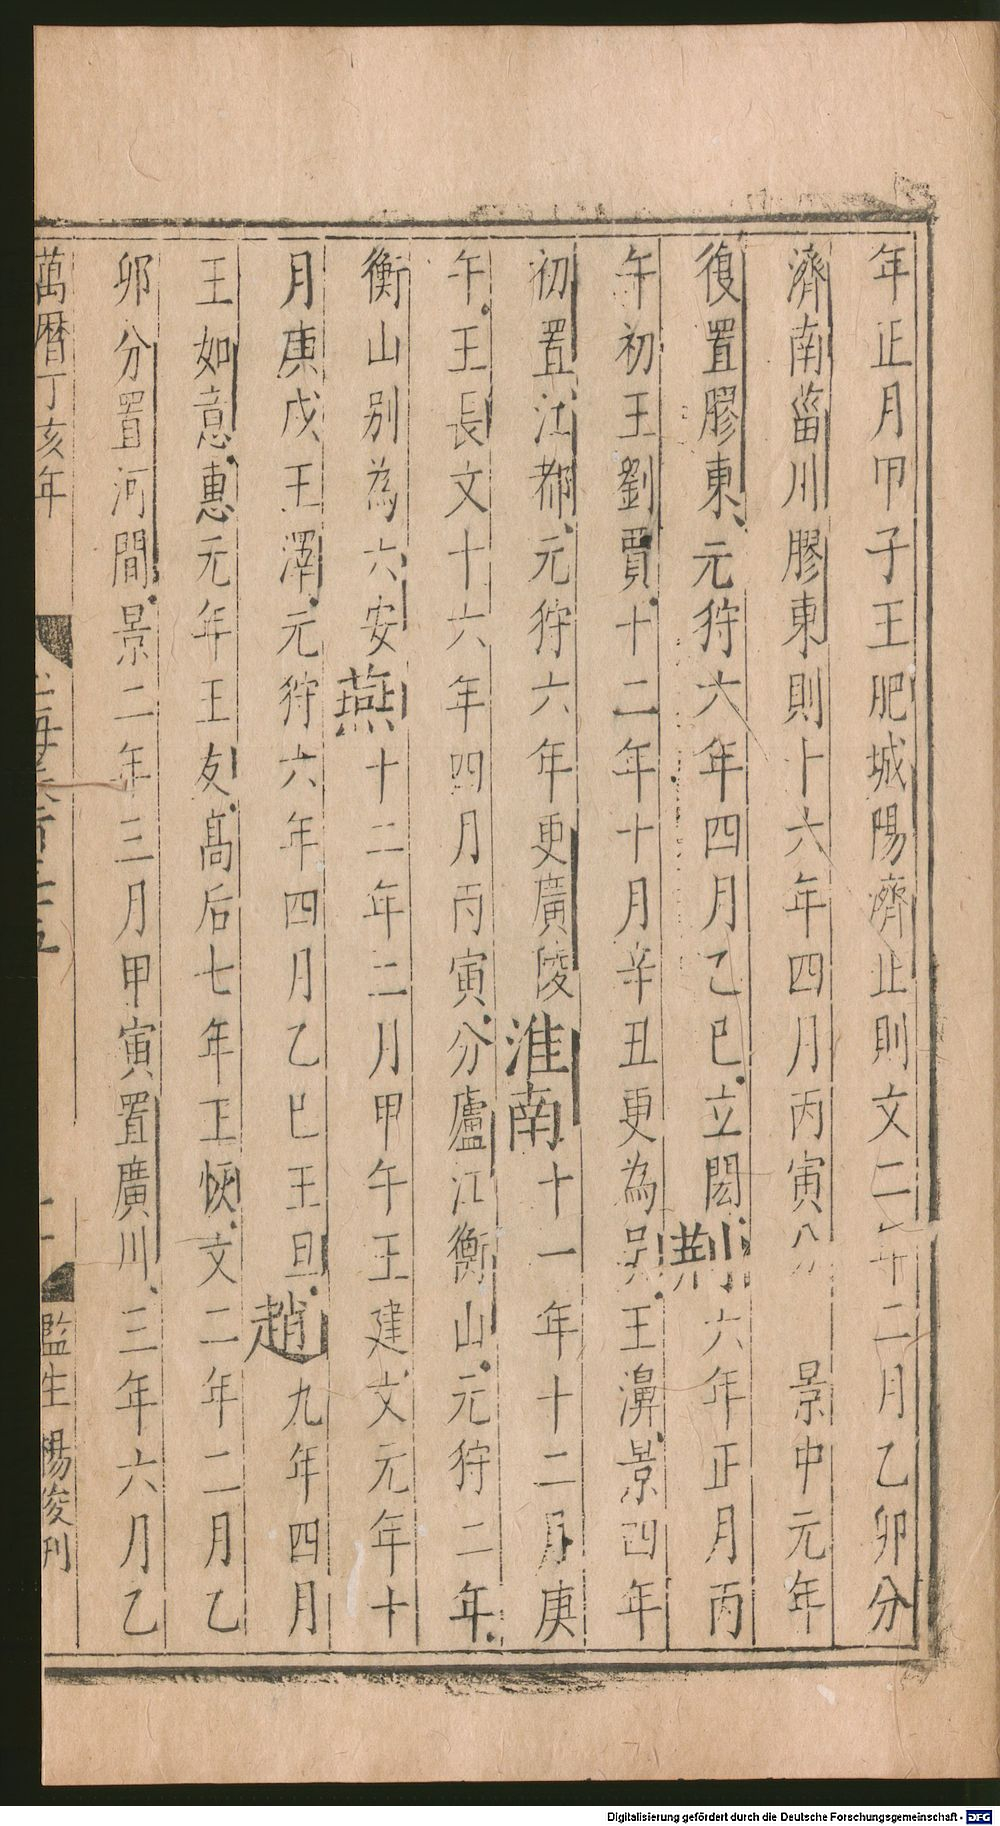 年正月甲子王肥城陽濟北則文二年二月乙卯分
濟南菑川膠東則十六年四月丙寅景中元年
復置膠東元狩六年四月乙巳立閎荆六年正月丙
午初王劉賈十二年十月辛丑更為吳王濞景四年
初置江都元狩六年更廣陵淮南十一年十二月庚
午王長文十六年四月丙寅分廬江衡山元狩二年
衡山別為六安燕十二年二月甲午王建文元年十
月庚戌王澤元狩六年四月乙巳王旦趙九年四月
王如意惠元年王友高后七年王恢文二年二月乙
卯分置河間景二年三月甲寅置廣川三年六月乙
萬曆丁亥年
監生楊俊刊
Digitalisierung gefördert durch die Deutsche Forschungsgemeinschaft - DFG